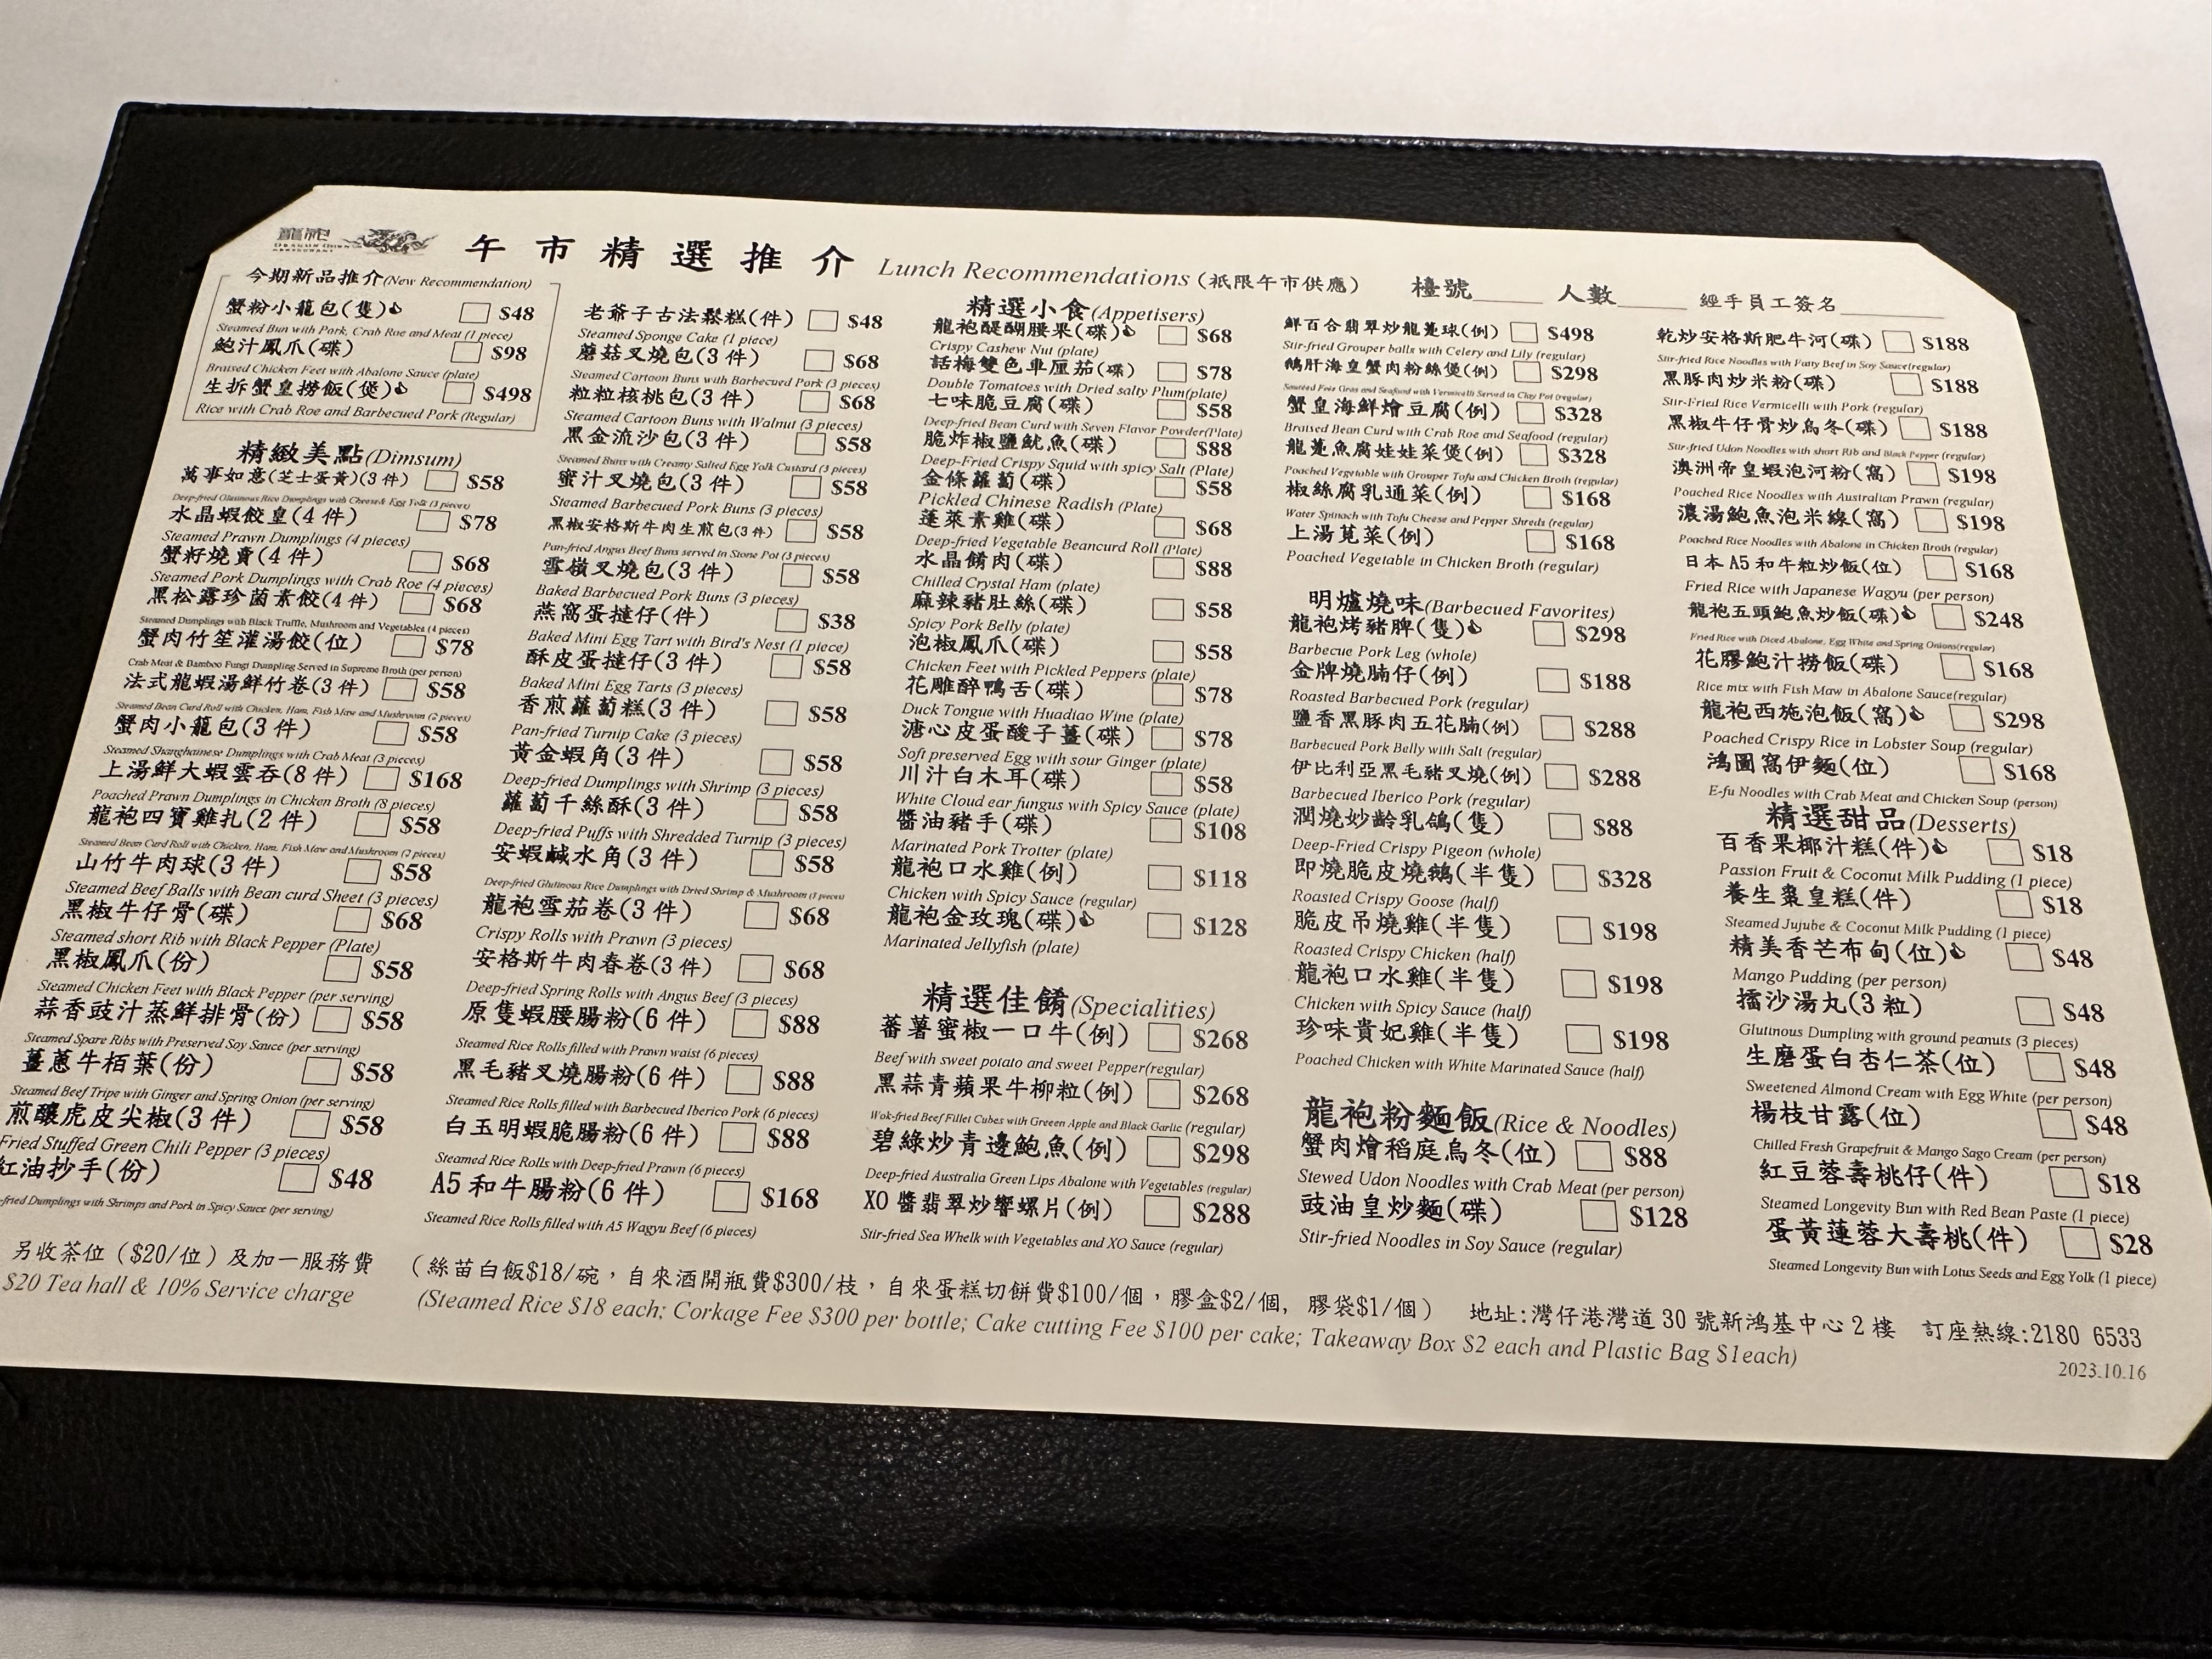 龍袍
DRAGON GOWN
RESTAURANT
午市精選推介 Lunch Recommendations (祇限午市供應) 檯號______ 人數______ 經手員工簽名__________
今期新品推介(New Recommendation)
蟹粉小籠包(隻)👍 □ $48
Steamed Bun with Pork, Crab Roe and Meat (1 piece)
鮑汁鳳爪(碟) □ $98
Braised Chicken Feet with Abalone Sauce (plate)
生拆蟹皇撈飯(煲)👍 □ $498
Rice with Crab Roe and Barbecued Pork (Regular)
精緻美點(Dimsum)
萬事如意(芝士蛋黃)(3件) □ $58
Deep-fried Glutinous Rice Dumplings with Cheese& Egg Yolk (3 pieces)
水晶蝦餃皇(4 件) □ $78
Steamed Prawn Dumplings (4 pieces)
蟹籽燒賣(4 件) □ $68
Steamed Pork Dumplings with Crab Roe (4 pieces)
黑松露珍菌素餃(4 件) □ $68
Steamed Dumplings with Black Truffle, Mushroom and Vegetables (4 pieces)
蟹肉竹笙灌湯餃(位) □ $78
Crab Meat & Bamboo Fungi Dumpling Served in Supreme Broth (per person)
法式龍蝦湯鮮竹卷(3 件) □ $58
Steamed Bean Curd Roll with Chicken, Ham, Fish Maw and Mushroom (2 pieces)
蟹肉小籠包(3 件) □ $58
Steamed Shanghainese Dumplings with Crab Meat (3 pieces)
上湯鮮大蝦雲吞(8 件) □ $168
Poached Prawn Dumplings in Chicken Broth (8 pieces)
龍袍四寶雞扎(2 件) □ $58
Steamed Bean Curd Roll with Chicken, Ham, Fish Maw and Mushroom (2 pieces)
山竹牛肉球(3 件) □ $58
Steamed Beef Balls with Bean curd Sheet (3 pieces)
黑椒牛仔骨(碟) □ $68
Steamed short Rib with Black Pepper (Plate)
黑椒鳳爪(份) □ $58
Steamed Chicken Feet with Black Pepper (per serving)
蒜香豉汁蒸鮮排骨(份) □ $58
Steamed Spare Ribs with Preserved Soy Sauce (per serving)
薑蔥牛栢葉(份) □ $58
Steamed Beef Tripe with Ginger and Spring Onion (per serving)
煎釀虎皮尖椒(3 件) □ $58
Fried Stuffed Green Chili Pepper (3 pieces)
紅油抄手(份) □ $48
-fried Dumplings with Shrimps and Pork in Spicy Sauce (per serving)
老爺子古法鬆糕(件) □ $48
Steamed Sponge Cake (1 piece)
蘑菇叉燒包(3 件) □ $68
Steamed Cartoon Buns with Barbecued Pork (3 pieces)
粒粒核桃包(3 件) □ $68
Steamed Cartoon Buns with Walnut (3 pieces)
黑金流沙包(3 件) □ $58
Steamed Buns with Creamy Salted Egg Yolk Custard (3 pieces)
蜜汁叉燒包(3 件) □ $58
Steamed Barbecued Pork Buns (3 pieces)
黑椒安格斯牛肉生煎包(3 件) □ $58
Pan-fried Angus Beef Buns served in Stone Pot (3 pieces)
雪嶺叉燒包(3 件) □ $58
Baked Barbecued Pork Buns (3 pieces)
燕窩蛋撻仔(件) □ $38
Baked Mini Egg Tart with Bird's Nest (1 piece)
酥皮蛋撻仔(3 件) □ $58
Baked Mini Egg Tarts (3 pieces)
香煎蘿蔔糕(3 件) □ $58
Pan-fried Turnip Cake (3 pieces)
黃金蝦角(3 件) □ $58
Deep-fried Dumplings with Shrimp (3 pieces)
蘿蔔千絲酥(3 件) □ $58
Deep-fried Puffs with Shredded Turnip (3 pieces)
安蝦鹹水角(3 件) □ $58
Deep-fried Glutinous Rice Dumplings with Dried Shrimp & Mushroom (3 pieces)
龍袍雪茄卷(3 件) □ $68
Crispy Rolls with Prawn (3 pieces)
安格斯牛肉春卷(3 件) □ $68
Deep-fried Spring Rolls with Angus Beef (3 pieces)
原隻蝦腰腸粉(6 件) □ $88
Steamed Rice Rolls filled with Prawn waist (6 pieces)
黑毛豬叉燒腸粉(6 件) □ $88
Steamed Rice Rolls filled with Barbecued Iberico Pork (6 pieces)
白玉明蝦脆腸粉(6 件) □ $88
Steamed Rice Rolls with Deep-fried Prawn (6 pieces)
A5 和牛腸粉(6 件) □ $168
Steamed Rice Rolls filled with A5 Wagyu Beef (6 pieces)
精選小食(Appetisers)
龍袍醍醐腰果(碟)👍 □ $68
Crispy Cashew Nut (plate)
話梅雙色車厘茄(碟) □ $78
Double Tomatoes with Dried salty Plum(plate)
七味脆豆腐(碟) □ $58
Deep-fried Bean Curd with Seven Flavor Powder(Plate)
脆炸椒鹽魷魚(碟) □ $88
Deep-Fried Crispy Squid with spicy Salt (Plate)
金條蘿蔔(碟) □ $58
Pickled Chinese Radish (Plate)
蓬萊素雞(碟) □ $68
Deep-fried Vegetable Beancurd Roll (Plate)
水晶餚肉(碟) □ $88
Chilled Crystal Ham (plate)
麻辣豬肚絲(碟) □ $58
Spicy Pork Belly (plate)
泡椒鳳爪(碟) □ $58
Chicken Feet with Pickled Peppers (plate)
花雕醉鴨舌(碟) □ $78
Duck Tongue with Huadiao Wine (plate)
溏心皮蛋酸子薑(碟) □ $78
Soft preserved Egg with sour Ginger (plate)
川汁白木耳(碟) □ $58
White Cloud ear fungus with Spicy Sauce (plate)
醬油豬手(碟) □ $108
Marinated Pork Trotter (plate)
龍袍口水雞(例) □ $118
Chicken with Spicy Sauce (regular)
龍袍金玫瑰(碟)👍 □ $128
Marinated Jellyfish (plate)
精選佳餚(Specialities)
蕃薯蜜椒一口牛(例) □ $268
Beef with sweet potato and sweet Pepper(regular)
黑蒜青蘋果牛柳粒(例) □ $268
Wok-fried Beef Fillet Cubes with Greeen Apple and Black Garlic (regular)
碧綠炒青邊鮑魚(例) □ $298
Deep-fried Australia Green Lips Abalone with Vegetables (regular)
XO 醬翡翠炒響螺片(例) □ $288
Stir-fried Sea Whelk with Vegetables and XO Sauce (regular)
鮮百合翡翠炒龍躉球(例) □ $498
Stir-fried Grouper balls with Celery and Lily (regular)
鵝肝海皇蟹肉粉絲煲(例) □ $298
Sauteed Foie Gras and Seafood with Vermicelli Served in Clay Pot (regular)
蟹皇海鮮燴豆腐(例) □ $328
Braised Bean Curd with Crab Roe and Seafood (regular)
龍躉魚腐娃娃菜煲(例) □ $328
Poached Vegetable with Grouper Tofu and Chicken Broth (regular)
椒絲腐乳通菜(例) □ $168
Water Spinach with Tofu Cheese and Pepper Shreds (regular)
上湯莧菜(例) □ $168
Poached Vegetable in Chicken Broth (regular)
明爐燒味(Barbecued Favorites)
龍袍烤豬脾(隻)👍 □ $298
Barbecue Pork Leg (whole)
金牌燒腩仔(例) □ $188
Roasted Barbecued Pork (regular)
鹽香黑豚肉五花腩(例) □ $288
Barbecued Pork Belly with Salt (regular)
伊比利亞黑毛豬叉燒(例) □ $288
Barbecued Iberico Pork (regular)
潤燒妙齡乳鴿(隻) □ $88
Deep-Fried Crispy Pigeon (whole)
即燒脆皮燒鵝(半隻) □ $328
Roasted Crispy Goose (half)
脆皮吊燒雞(半隻) □ $198
Roasted Crispy Chicken (half)
龍袍口水雞(半隻) □ $198
Chicken with Spicy Sauce (half)
珍味貴妃雞(半隻) □ $198
Poached Chicken with White Marinated Sauce (half)
龍袍粉麵飯(Rice & Noodles)
蟹肉燴稻庭烏冬(位) □ $88
Stewed Udon Noodles with Crab Meat (per person)
豉油皇炒麵(碟) □ $128
Stir-fried Noodles in Soy Sauce (regular)
乾炒安格斯肥牛河(碟) □ $188
Stir-fried Rice Noodles with Fatty Beef in Soy Sauce(regular)
黑豚肉炒米粉(碟) □ $188
Stir-Fried Rice Vermicelli with Pork (regular)
黑椒牛仔骨炒烏冬(碟) □ $188
Stir-fried Udon Noodles with short Rib and Black Pepper (regular)
澳洲帝皇蝦泡河粉(窩) □ $198
Poached Rice Noodles with Australian Prawn (regular)
濃湯鮑魚泡米線(窩) □ $198
Poached Rice Noodles with Abalone in Chicken Broth (regular)
日本 A5 和牛粒炒飯(位) □ $168
Fried Rice with Japanese Wagyu (per person)
龍袍五頭鮑魚炒飯(碟)👍 □ $248
Fried Rice with Diced Abalone, Egg White and Spring Onions(regular)
花膠鮑汁撈飯(碟) □ $168
Rice mix with Fish Maw in Abalone Sauce(regular)
龍袍西施泡飯(窩)👍 □ $298
Poached Crispy Rice in Lobster Soup (regular)
鴻圖窩伊麵(位) □ $168
E-fu Noodles with Crab Meat and Chicken Soup (person)
精選甜品(Desserts)
百香果椰汁糕(件)👍 □ $18
Passion Fruit & Coconut Milk Pudding (1 piece)
養生棗皇糕(件) □ $18
Steamed Jujube & Coconut Milk Pudding (1 piece)
精美香芒布甸(位)👍 □ $48
Mango Pudding (per person)
擂沙湯丸(3 粒) □ $48
Glutinous Dumpling with ground peanuts (3 pieces)
生磨蛋白杏仁茶(位) □ $48
Sweetened Almond Cream with Egg White (per person)
楊枝甘露(位) □ $48
Chilled Fresh Grapefruit & Mango Sago Cream (per person)
紅豆蓉壽桃仔(件) □ $18
Steamed Longevity Bun with Red Bean Paste (1 piece)
蛋黃蓮蓉大壽桃(件) □ $28
Steamed Longevity Bun with Lotus Seeds and Egg Yolk (1 piece)
另收茶位（$20/位）及加一服務費 （絲苗白飯$18/碗，自來酒開瓶費$300/枝，自來蛋糕切餅費$100/個，膠盒$2/個, 膠袋$1/個） 地址:灣仔港灣道 30 號新鴻基中心 2 樓 訂座熱線:2180 6533
$20 Tea hall & 10% Service charge (Steamed Rice $18 each; Corkage Fee $300 per bottle; Cake cutting Fee $100 per cake; Takeaway Box $2 each and Plastic Bag $1each)
2023.10.16